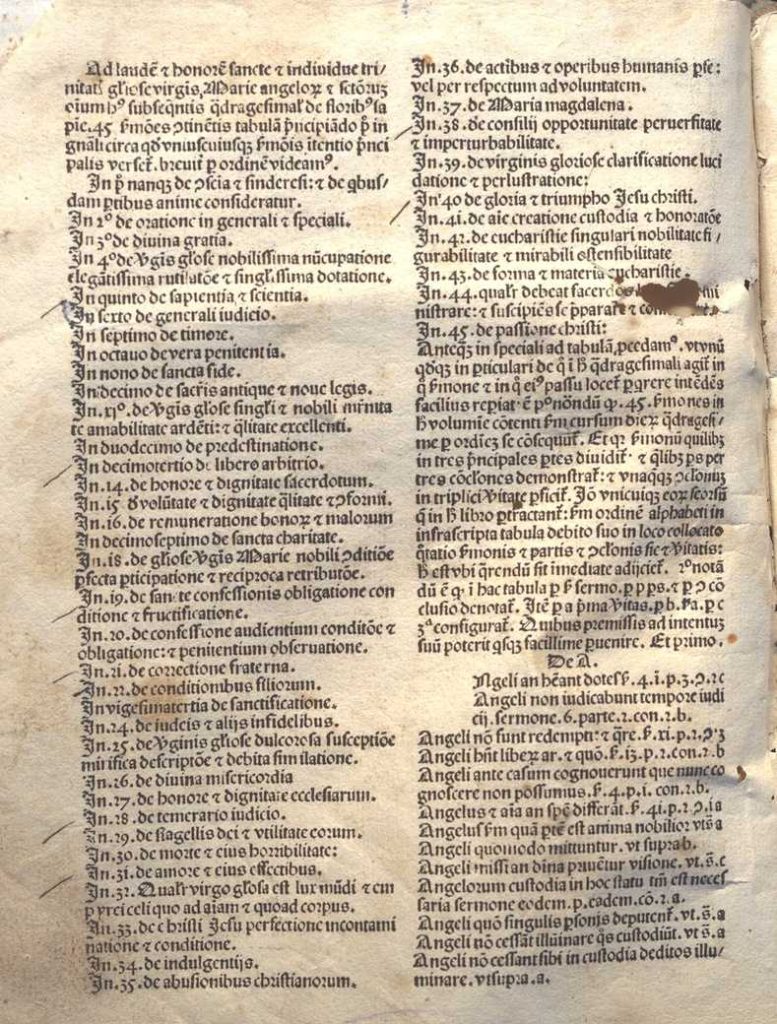 Ad laudē ⁊ honorē sancte ⁊ individue tri/
nitatꝭ gl̄iose virgis, Marie angeloꝝ ⁊ sctōꝝ
oīum hꝰ subseqn̄tis q̄dragesimal̓ de florib' sa
pīe. 45 ẜmōes ↄtinētis tabulā p̄ncipiādo ꝑ in
gn̄ali circa qd̓ vniuscuiusqꝫ ẜmōis ītentio p̄nci
palis verset᷑. breuit̓ ꝑ ordinē videamꝰ.
In pº nanqꝫ de ↄscia ⁊ sinderesi: ⁊ de qͥbus/
dam ꝑtibus anime consideratur.
In 2º de oratione in generali ⁊ speciali.
In 3º de divina gratia.
In 4º de v̓gis gl̄ose nobilissima nūcupatione
elegātissima rutilatōe ⁊ singl̓issima dotatione.
In quinto de sapientia ⁊ scientia.
In sexto de generali iudicio.
In septimo de timore.
In octauo de vera penitentia.
In nono de sancta fide.
In decimo de sacris antique ⁊ noue legis.
In. xiº. de v̓gis gl̄ose singl̓i ⁊ nobili
te amabilitate ardēti: ⁊ q̄litate excellenti.
In duodecimo de predestinatione.
In decimotertio de libero arbitrio.
In. 14. de honore ⁊ dignitate sacerdotum.
In. 15 d̓ volūtate ⁊ dignitate q̄litate ⁊ ↄformi.
In. 16. de remuneratione honoꝝ ⁊ malorum
In decimoseptimo de sancta charitate.
In. 18. de gl̄iose v̓gis Marie nobili ↄditiōe
ꝑfecta ꝑticipatione ⁊ reciproca retributōe.
In. 19. de sancte confessionis obligatione con
ditione ⁊ fructificatione.
In. 20. de confessione audientium conditōe ⁊
obligatione: ⁊ penitentium obseruatione.
In. 21. de correctione fraterna.
In. 22. de conditionibus filiorum.
In vigesimatertia de sanctificatione.
In. 24. de iudeis ⁊ alijs infidelibus.
In. 25. de v̓ginis gl̄iose dulcorosa susceptiōe
mirifica descriptōe ⁊ debita similatione.
In. 26. de diuina misericordia
In. 27. de honore ⁊ dignitate ecclesiarum.
In. 28. de temerario iudicio.
In. 29. de flagellis dei ⁊ vtilitate eorum.
In. 30. de morte ⁊ eius horribilitate:
In. 31. de amore ⁊ eius effectibus.
In. 32. Qualr̓ virgo gl̄osa est lux mūdi ⁊ em
p̄ yrei celi quo ad aīam ⁊ quoad corpus.
In. 33. de christi Jesu perfectione incontami
natione ⁊ conditione.
In. 34. de indulgentijs.
In. 35. de abusionibus christianorum.
In. 36. de actibus ⁊ operibus humanis ꝑ se:
vel per respectum ad voluntatem.
In. 37. de Maria magdalena.
In. 38. de consilij opportunitate peruersitate
⁊ imperturbabilitate.
In. 39. de virginis gloriose clarificatione luci
datione ⁊ perlustratione:
In 40 de gloria ⁊ triumpho Jesu christi.
In. 41. de aīe creatione custodia ⁊ honoratōe
In. 42. de eucharistie singulari nobilitate fi/
gurabilitate ⁊ mirabili ostensibilitate
In. 43. de forma ⁊ materia eucharistie.
In. 44. qualr̓ debeat sacerdos mi
nistrare: ⁊ suscipiēs se p̄parare ⁊
In. 45. de passione christi:
Anteqꝫ in speciali ad tabulā ꝓcedamꝰ. vt vnū
qd̓qꝫ in ꝑticulari de qͦ ī h̓ q̄dragesimali agit᷑ in
qͦ ẜmone ⁊ in qͦ eiꝰ passu locet᷑ ꝑqrere intēdēs
facilius reꝑiat ē pͥº notādū qͥ. 45. ẜmones in
h̓ volumīe cōtenti ẜm cursum dieꝝ q̄dragesi/
me ꝑ ordīeꝫ se cōsequūt᷑. Et qꝛ ẜmonū quilibꝫ
in tres p̄ncipales ꝑtes diuidit᷑: ⁊ q̄libꝫ ꝑs per
tres cōclones demonstrat᷑: ⁊ vnaqqꝫ ↄclonū
in triplici v̓itate ꝑficit᷑. Iō vnicuiqꝫ eoꝝ seorsū
q̄ in h̓ libro ꝑtractant᷑: ẜm ordinē alphabeti in
infrascripta tabula debito suo in loco collocato
q̄tatio ẜmonis ⁊ partis ⁊ ↄclonis sic ⁊ v̓itatis:
h̓ est vbi q̄rendū sit īmediate adijcit᷑. 2º notā
dū ē qͥ. ī hac tabula ꝑ ẜ sermo. ꝑ p ꝑs. ⁊ ꝑ ↄ cō
clusio denotat᷑. Itē ꝑ a p̄ma v̓itas. ꝑ b. 2ª. ꝑ c
3ª configurat᷑. Quibus premissis ad intentuꝫ
suū poterit qͥsqꝫ facillime ꝑuenire. Et primo.
De A.
Ngeli an hēant dotes ẜ. 4. i. p. 3. ↄ. 2 c
Angeli non iudicabunt tempore iudi
cij. sermone. 6. parte. 2. con. 2. b.
Angeli nō sunt redempti: ⁊ q̄re. ẜ. xi. p. 2. ↄ 3
Angeli hn̄t liberꝝ ar. ⁊ quō. ẜ. 13. p. 2. con. 2. b
Angeli ante casum cognouerunt que nunc co
gnoscere non possumus. ẜ. 4. p. i. con. 2. b.
Angelus ⁊ aīa an spē differāt. ẜ. 4i. p. 2 ↄ i a
Angelus ẜm quā ꝑtē est anima nobilior vt s̄ a
Angeli quomodo mittuntur. vt supra b.
Angeli missi an diīna priuētur visione. vt. s̄. c
Angelorum custodia in hoc statu tm̄ est neces
saria sermone eodem. p. eadem. cō. 2. a.
Angeli quō singulis ꝑsonis deputent᷑. vt. s̄. a
Angeli nō cessāt illūinare q̄s custodiūt. vt s̄. a
Angeli nō cessant sibi in custodia deditos illu/
minare. vt supra. a.